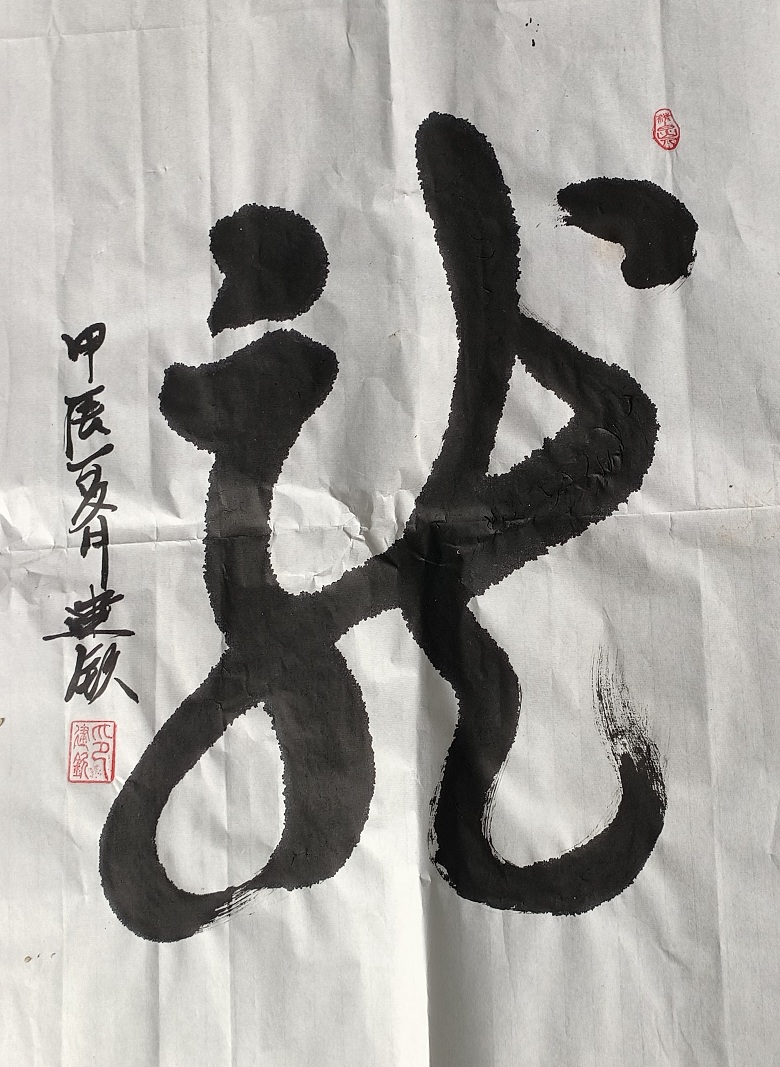 龍
甲辰夏月建欽